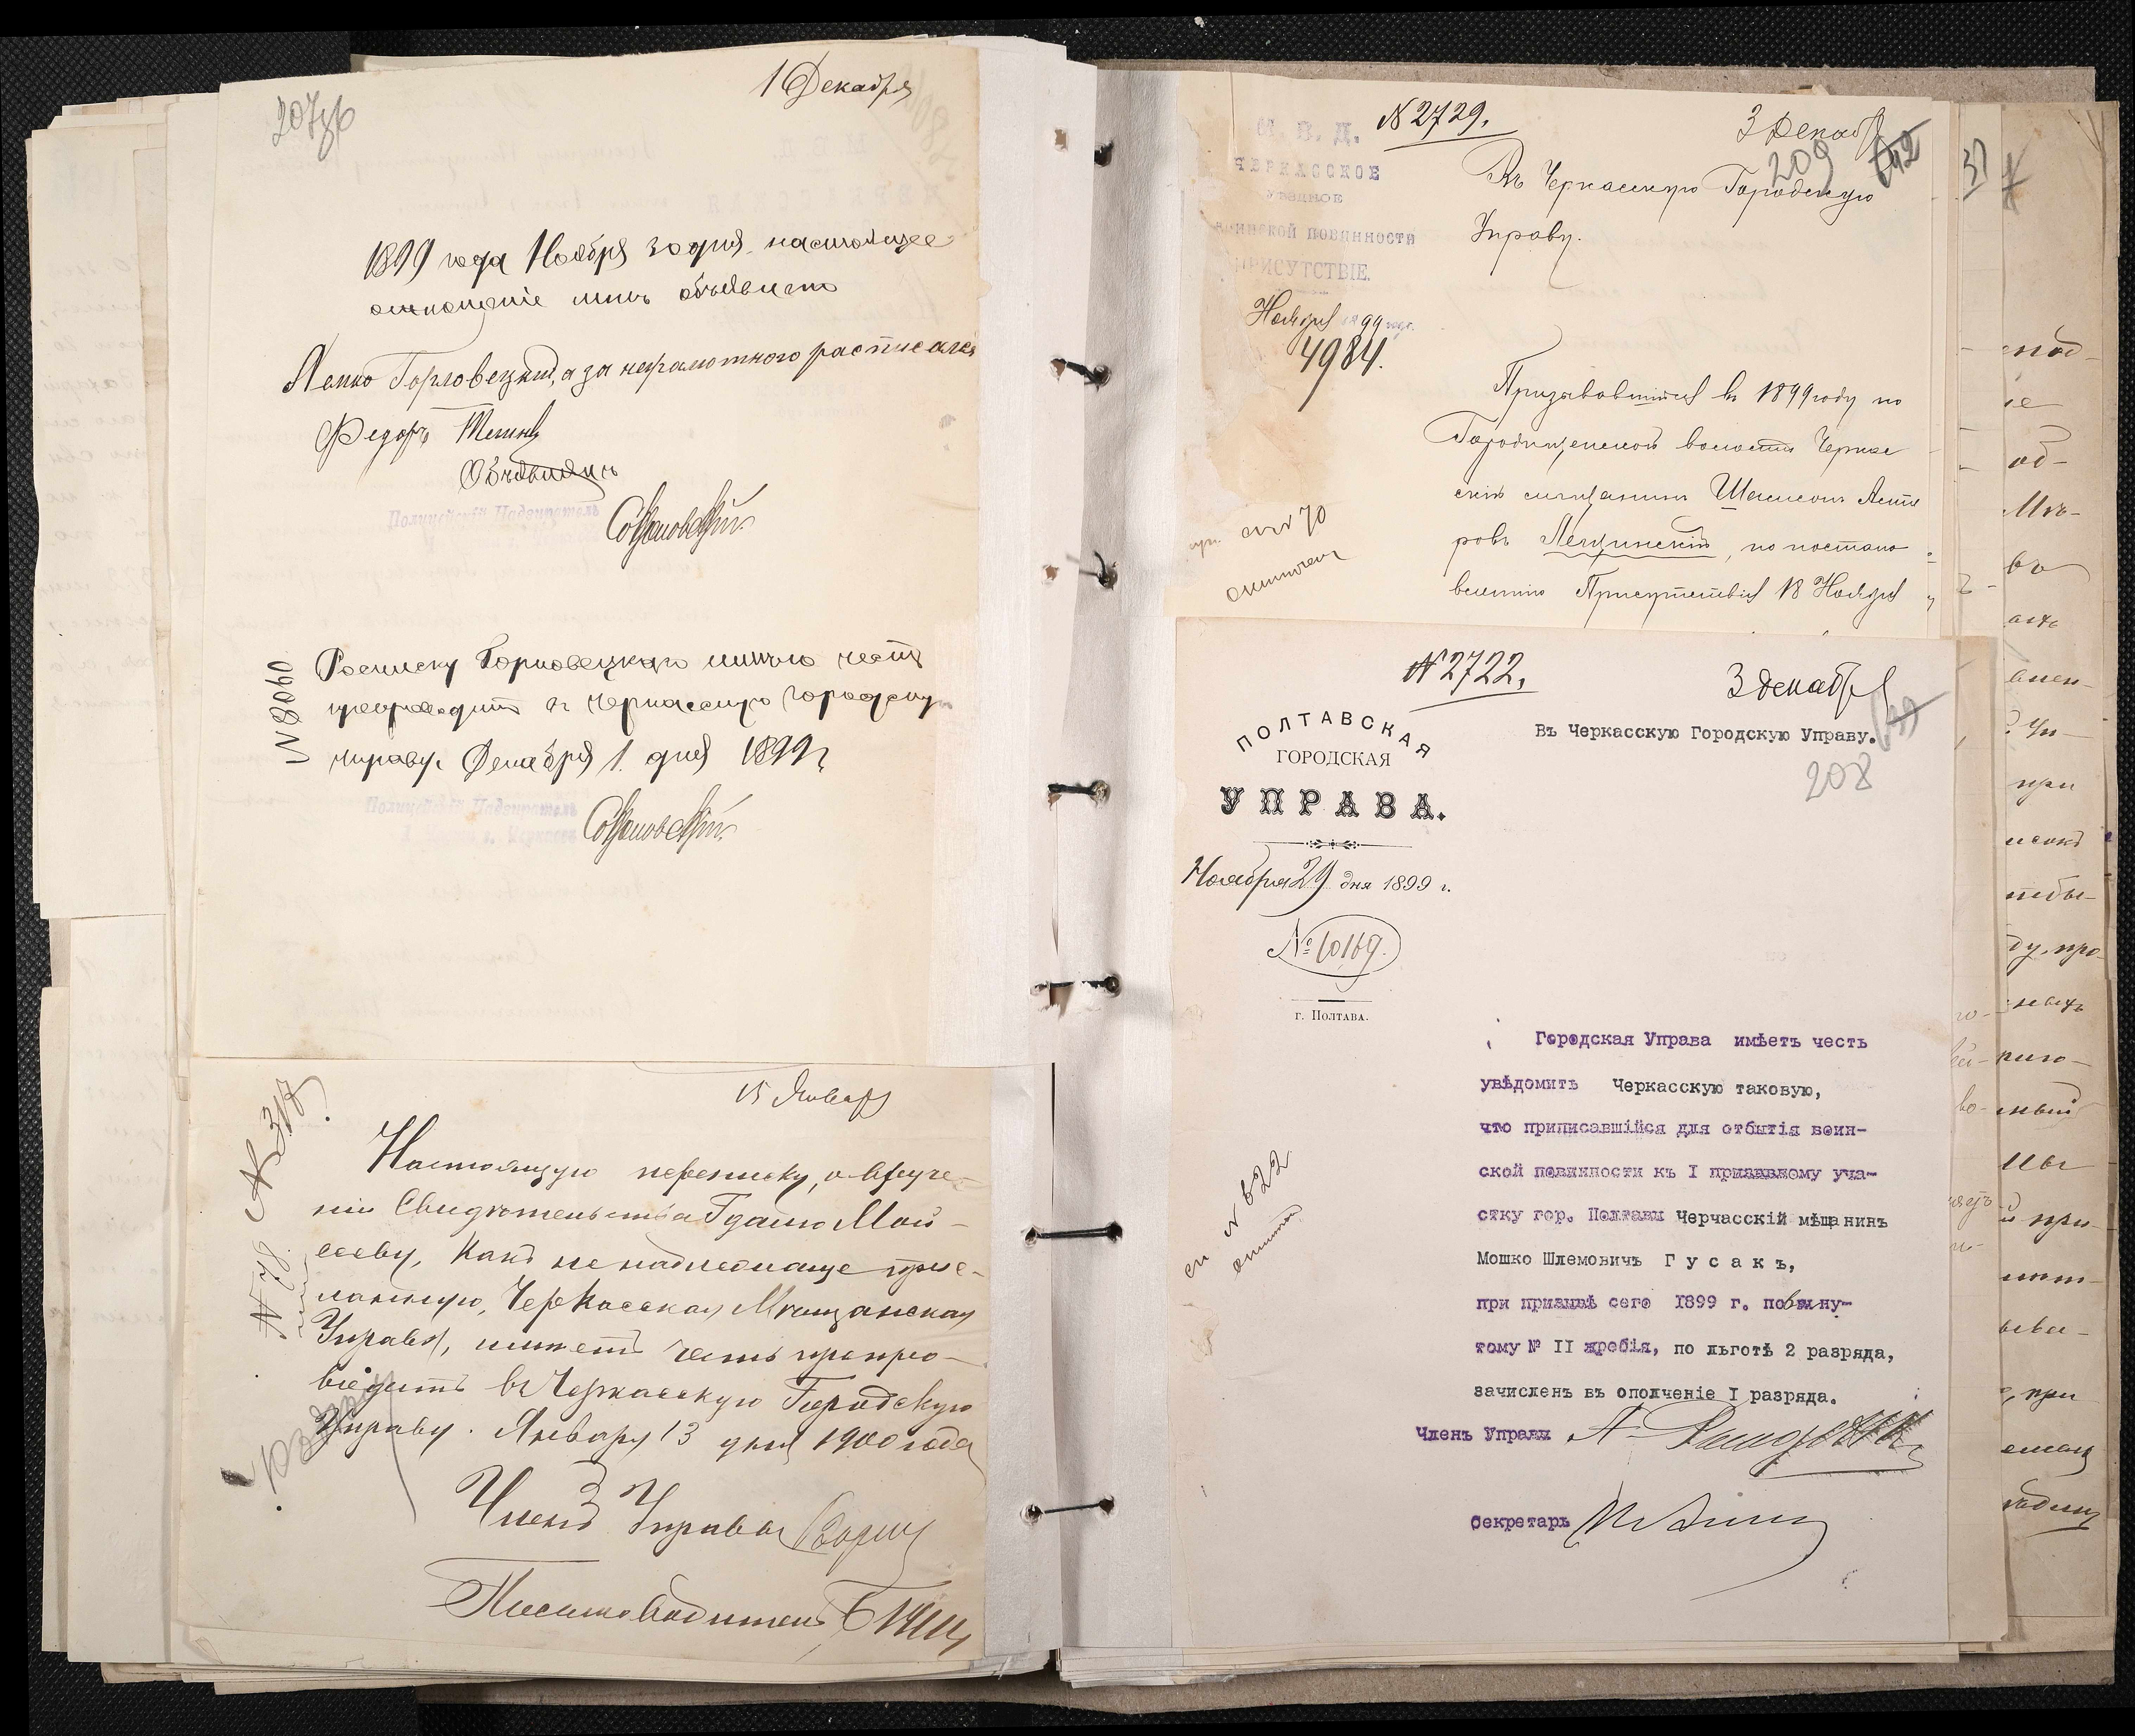 1 Декабря
207 об
1899 года Ноября 30 дня настоящее
отношение мнѣ объявлено
Лейко Горловецкий, а за неграмотного расписался
Федоръ
Объявилъ
Полицейскій Надзиратель
№ 8060
Росписку Горловецкаго имѣю честь
препроводить въ Черкасскую Городскую
Управу. Декабря 1 дня 1899 г.
Полицейскій Надзиратель
15 Января
№ 317
№ 78
Настоящую переписку, о вруче-
ніи Свидѣтельства Гдалю Мой-
сееву, какъ не надлежаще прис-
ланную, Черкасская Мѣщанская
Управа, имѣетъ честь препро-
водить въ Черкасскую Городскую
Управу. Января 13 дня 1900 года
Членъ Управы
Письмоводитель
№ 2729.
3 Декабр
209
142
М. В. Д.
ЧЕРКАССКОЕ
УѢЗДНОЕ
ВОИНСКОЙ ПОВИННОСТИ
ПРИСУТСТВІЕ.
Ноября 1899 года.
4984.
Въ Черкасскую Городскую
Управу.
Призывавшійся въ 1899 году по
Городищенской волости Черкас
скій мѣщанинъ Шамсонъ Лейзе
ровъ Лещинскій, по постано
вленію Присутствія 18 Ноября
№ 70
№ 2722.
3 декабря
208
ПОЛТАВСКАЯ
ГОРОДСКАЯ
УПРАВА.
Ноября 29 дня 1899 г.
№ 10169.
г. ПОЛТАВА.
Въ Черкасскую Городскую Управу.
Городская Управа имѣетъ честь
увѣдомить Черкасскую таковую,
что приписавшійся для отбытія воин-
ской повинности къ I призывному уча-
стку гор. Полтавы Черчасскій мѣщанинъ
Мошко Шлемовичъ Гусакъ,
при призывѣ сего 1899 г. повыну-
тому № II жребія, по льготѣ 2 разряда,
зачисленъ въ ополченіе I разряда.
№ 622
Членъ Управы
Секретарь